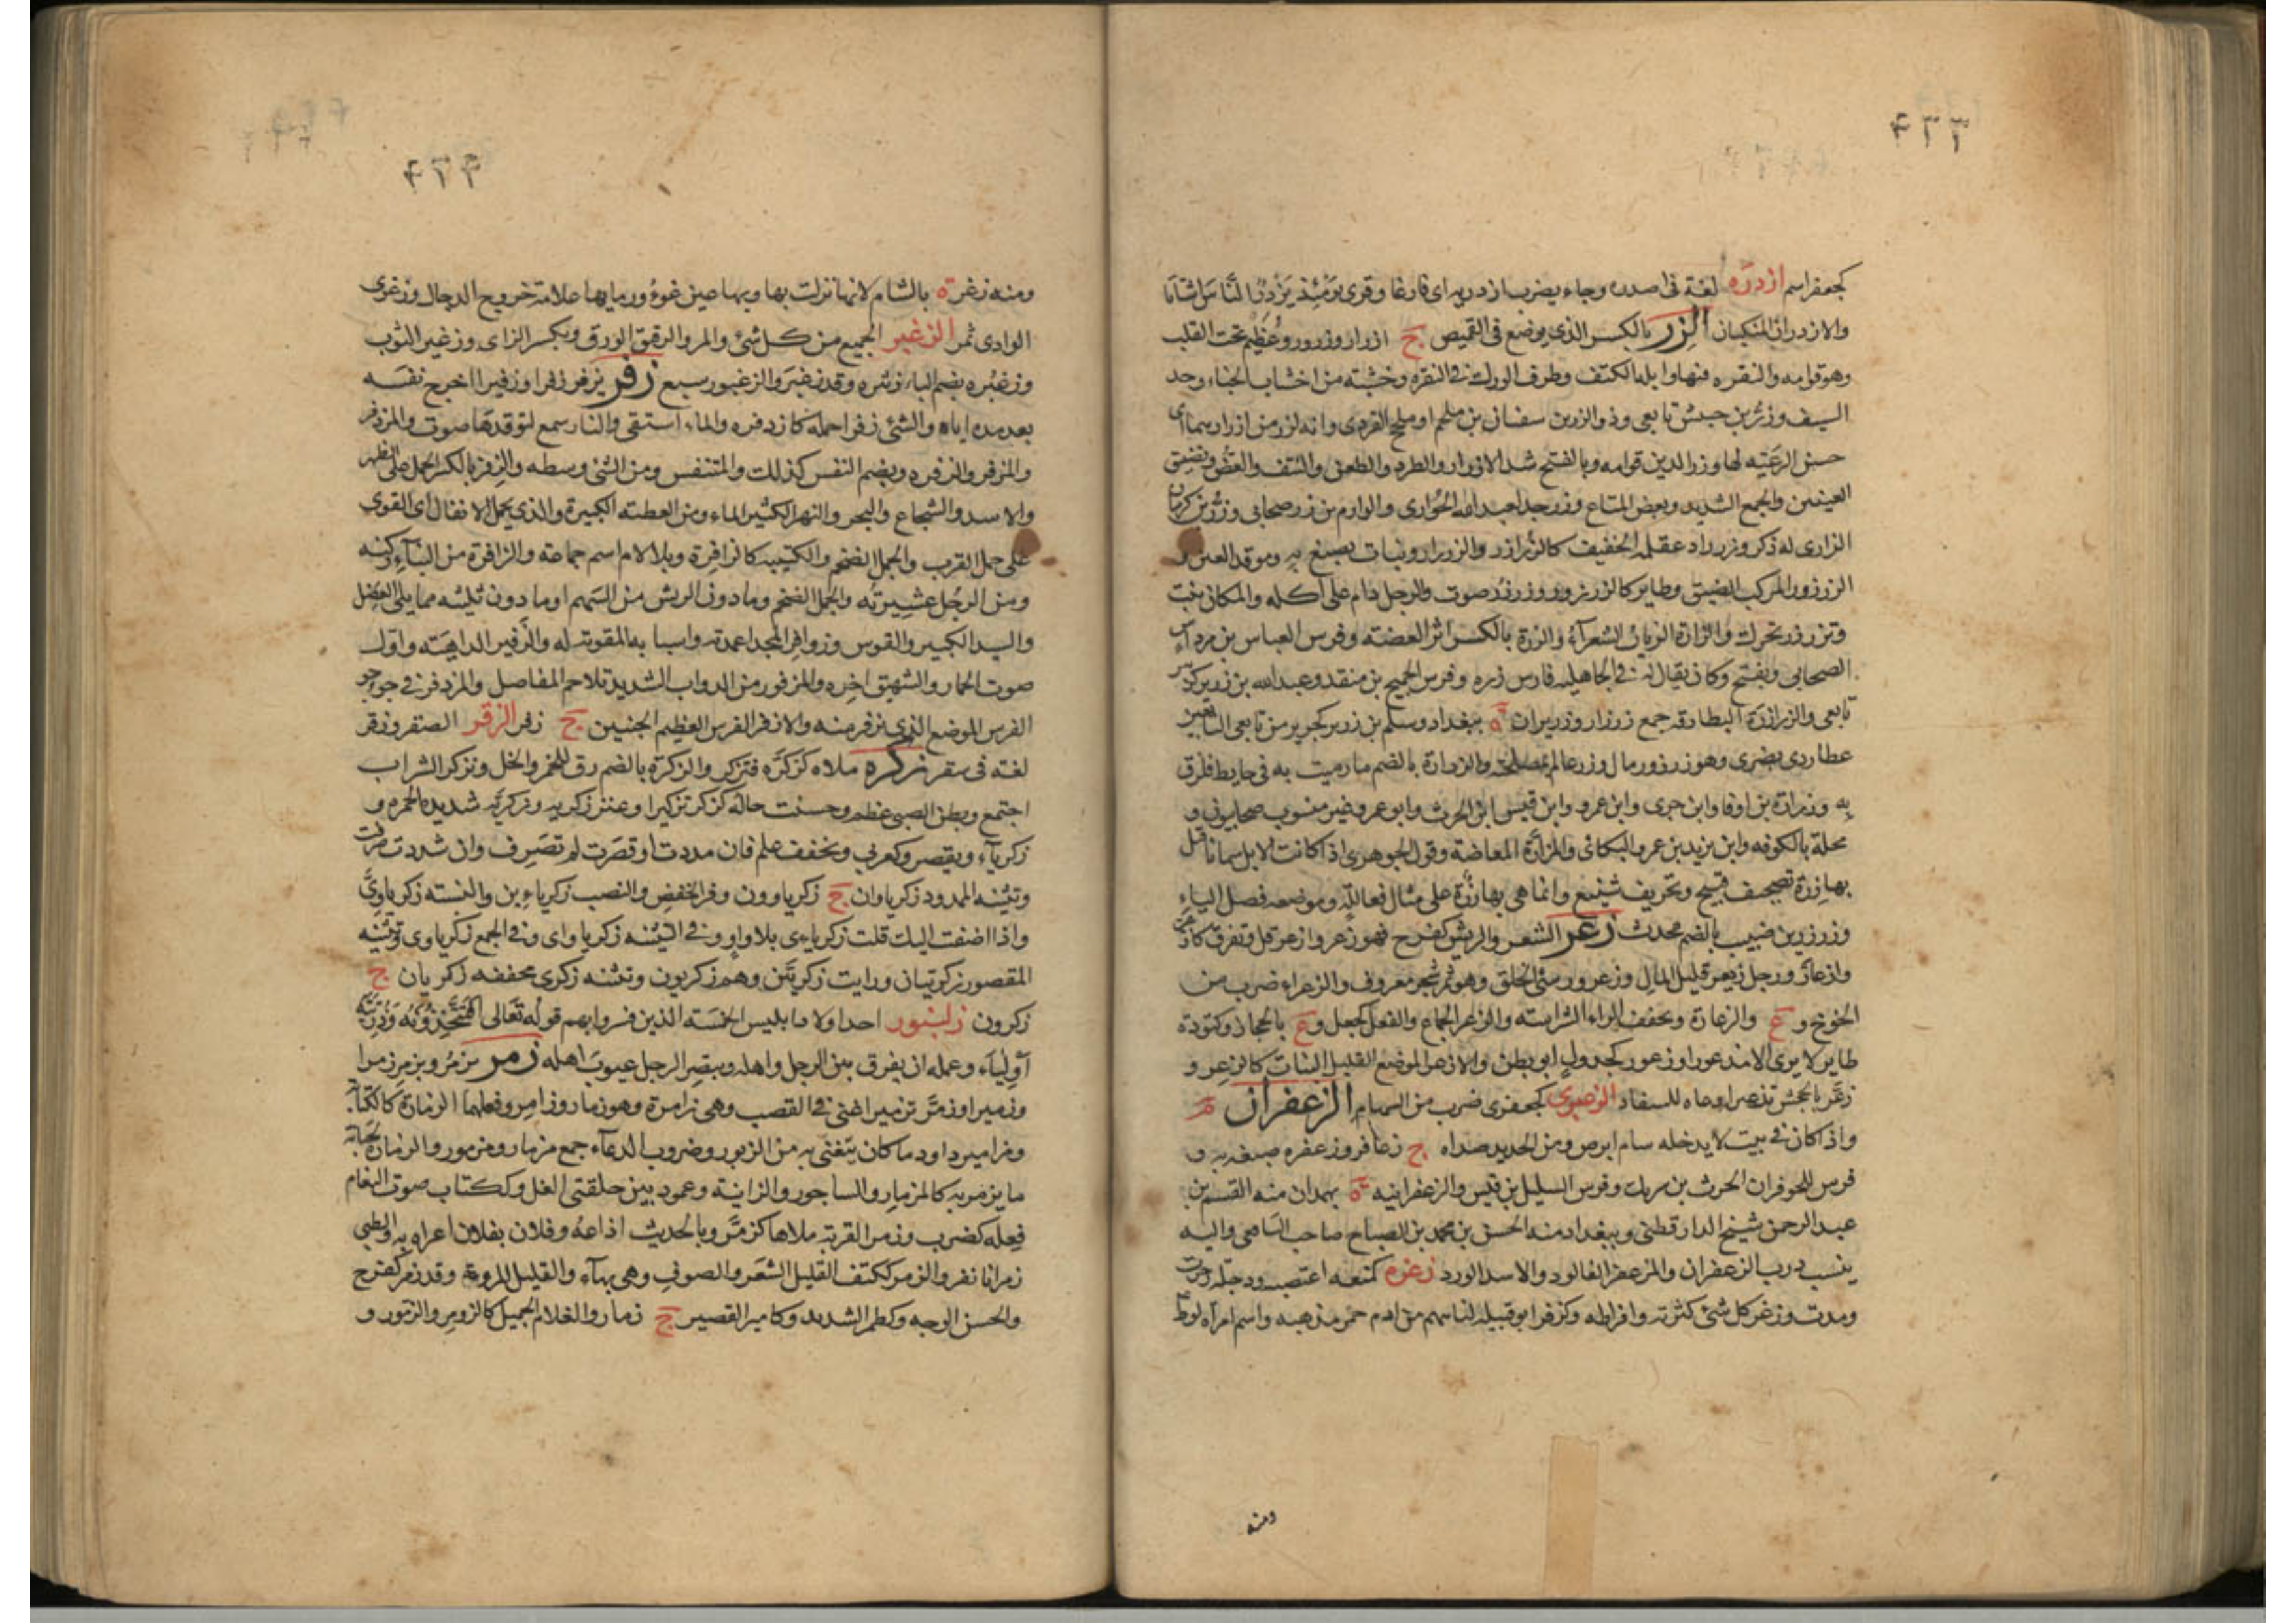 ٤٣٣
كجعفر اسم ازدره لغة فى اصدره وجاء يضرب ازدريه اى فارغا وقرى يومئذ يزدر الناس اشتاتا
والازدران المنكبان الزر بالكسر الذى يوضع فى القميص ج ازرار وزرور وعظيم تحت القلب
وهو قوامه والنقره فيها وابلة الكتف وطرف الورك فى النقره وخشبة من اخشاب الخباء وحد
السيف وزر بن حبيش تابعى وذو الزرين سفيان بن ملحم او ملحج القردى وانه لزر من ازرارها اى
حسن الرعية لها وزر الدين قوامه وبالفتح شد الازرار والطرد والطعن والنتف والعض وتضييق
العينين والجمع الشديد ونفض المتاع وزر جد لعبدالله الخوارى والوازم بن زر صحابى وزر بن كرمان
الرازى له ذكر وزر زاد عقله الخفيف كالزرازر والزرزار ونبات يصبغ به وموقد العين
الزرزور المركب الضيق وطاير كالزرزر وزرزر صوت والرجل دام على اكله والمكان ثبت
وتزرزر تحرك والزارة الزبان الشعراء والزرة بالكسر اثر العضة وفرس العباس بن مرداس
الصحابى ويفتح وكان يقال له فى الجاهلية فارس زره وفرس الجميح بن منقذ وعبدالله بن زرير كزبير
تابعى والزرازرة البطارقة جمع زرزار وزريران ة ببغداد وسلم بن زرير كجرير من تابعى التابعين
عطاردى بصرى وهو زرزور مال وزر عالم بمصلحته والزرارة بالضم ما رميت به فى حايط فلزق
به وزرارة بن اوفا وابن جرى وابن عمرو وابن قيس ابن الحرث وابو عمرو غير منسوب صحابيون و
محلة بالكوفه وابن يزيد بن عمرو البكائى والمزارة المعاضة وقول الجوهرى اذا كانت الابل سمانا قيل
بها زرة تصحيف قبيح وتحريف شنيع وانما هى بهازرة على مثال فعاللة وموضعه فصل الباء
وزرزر بن صهيب بالضم محدث زعر الشعر والريش كفرح فهو زعر وازعر قل وتفرق كازعر
وازعار ورجل زيعر قليل المال وزعرور سئ الخلق وهو ثمر شجر معروف والزعراء ضرب من
الخوخ و ع والزعارة وتخفف الراء الشراسة والزعر الجماع والفعل كجعل و ع بالحجاز وكتؤدة
طاير لا يرى الا مذعورا وزعور كجدول ابو بطن والازعر الموضع القليل النبات كالزعر و
زعر بالجحش تزعيرا دعاه للسفاد الزعبرى كجعفرى ضرب من السهام الزعفران م
واذا كان فى بيت لا يدخله سام ابرص ومن الحديد صداه ج زعافر وزعفره صبغه به و
فرس للحوفزان الحرث بن شريك وفرس السليل بن قيس والزعفرانية ة بهمدان منه القسم بن
عبد الرحمن شيخ الدارقطنى وببغداد منه الحسن بن محمد بن الصباح صاحب الشافعى واليه
ينسب درب الزعفران والمزعفر الفالوذ والاسد الورد زغره كمنعه اغتصبه ودجلة زخرت
ومدت وزغر كل شئ كثرته وافراطه وكزفر ابو قبيلة لناسهم من ادم حمر مذهبة واسم امراة لوط
ومنه
٤٣٤
ومنه زغر ة بالشام لانها نزلت بها وبها عين غوؤر مايها علامة خروج الدجال وزغرى
الوادى تمر الزغبر الجميع من كل شئ والمر والرقيق الورق وبكسر الزاى وزغبر الثوب
وزغبره بضم الباء زئبره وقد زغبر والزغبور سبع زفر يزفر زفرا وزفيرا اخرج نفسه
بعد مده اياه والشئ زفرا حمله كازدفره والماء استقى والنار سمع لتوقدها صوت والمزدفر
والمزفر والزفره ويضم النفس كذلك والمتنفس ومن الشئ وسطه والزفر بالكسر الحمل على الظهر
والاسد والشجاع والبحر والنهر الكثير الماء ومن العطية الكبيرة والذى يحمل الاثقال اى القوى
على حمل القرب والجمل الضخم والكتيبة كالزافرة وبلا لام اسم جماعة والزافرة من البناء ركنه
ومن الرجل عشيرته والجمل الضخم وما دون الريش من السهم او ما دون ثلثيه مما يلى النصل
والسيد الكبير والقوس وزوافر المجد اعمدته واسبابه المقوية له والزفير الداهية واول
صوت الحمار والشهيق اخره والمزفور من الدواب الشديد تلاحم المفاصل والمزدفر فى جوجو
الفرس الموضع الذى يزفر منه والازفر الفرس العظيم الجنبين ج زفر الزقر الصقر وزقر
لغة فى سقر زكره ملاه كزكره فتزكر والزكرة بالضم زق للخمر والخل وتزكر الشراب
اجتمع وبطن الصبى عظم وحسنت حاله كزكر تزكيرا وعنز زكرية وزكرية شديدة الحمره و
زكرياء ويقصر وكعربى ويخفف علم فان مددت او قصرت لم تصرف وان شددت صرفت
وتثنية الممدود زكرياوان ج زكرياوون وفى الخفض والنصب زكرياءين والنسبة زكرياوى
واذا اضفت اليك قلت زكرياءى بلا واو وفى التثنيه زكرياواى وفى الجمع زكرياوى وتثنيه
المقصور زكرييان ورايت زكريين وهم زكريون وتثنيه زكرى مخففه زكريان ج
زكرون زلنبور احد اولاد ابليس الخمسة الذين فسروا بهم قوله تعالى افتتخذونه وذريته
اولياء وعمله ان يفرق بين الرجل واهله ويبصر الرجل عيوب اهله زمر يزمر ويزمر زمرا
وزميرا وزمر تزميرا غنى فى القصب وهى زامرة وهو زمار وزامر وفعلهما الزمارة كالكتابة
ومزامير داود ما كان يتغنى به من الزبور وضروب الدعاء جمع مزمار ومزمور والزمارة كجبانة
ما يزمر به كالمزمار والساجور والزانية وعمود بين حلقتى الغل وككتاب صوت النعام
فعله كضرب وزمر القربة ملاها كزمر وبالحديث اذاعه وفلان بفلان اغراه به والظبى
زمرانا نفر والزمر ككتف القليل الشعر والصوف وهى بهاء والقليل المروة وقد زمر كفرح
والحسن الوجه وكطمر الشديد وكامير القصير ج زمار والغلام الجميل كالزومر والزمور و